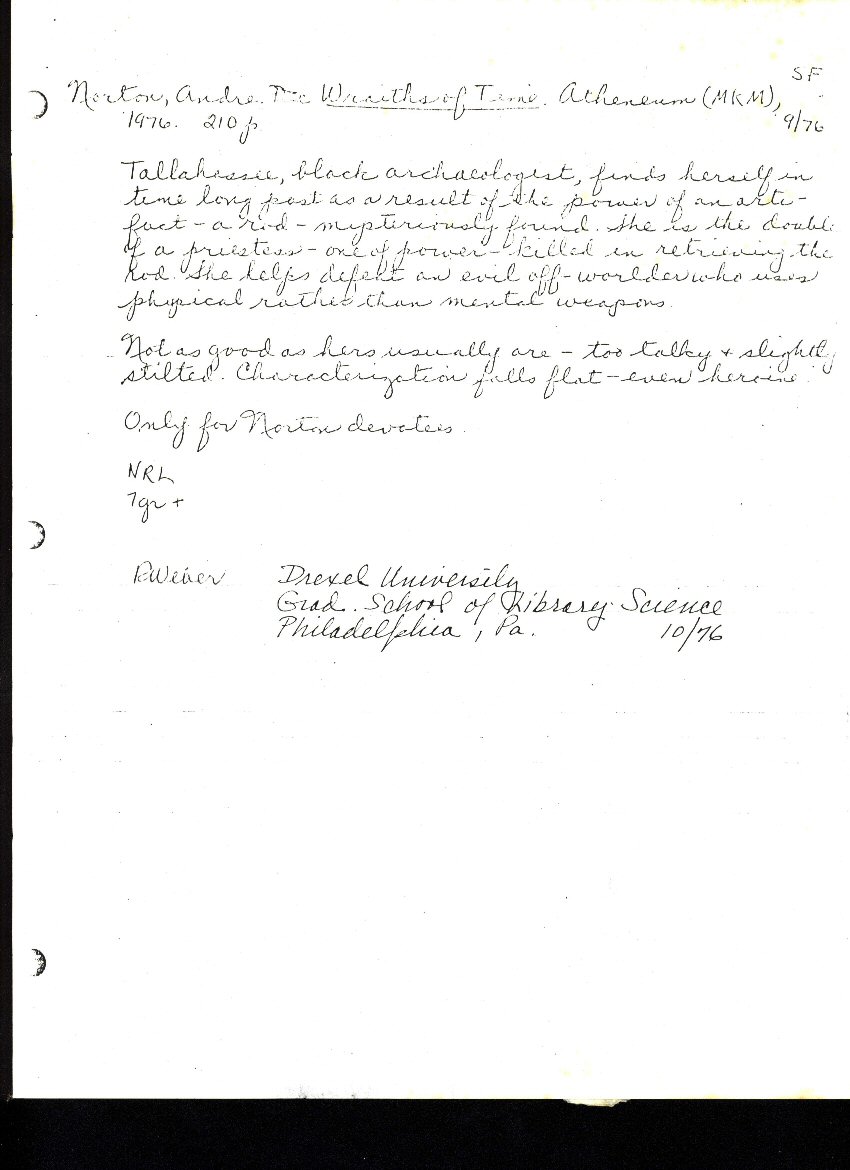 SF
Norton, Andre. The Wraiths of Time. Atheneum (MKM),
1976. 210 p 9/76
Tallahessee, black archaeologist, finds herself in
time long past as a result of the power of an arti-
fact - a rod - mysteriously found. She is the double
of a priestess - one of power - killed in retrieving the
rod. She helps defeat an evil off-worlder who uses
physical rather than mental weapons.
Not as good as hers usually are - too talky + slightly
stilted. Characterization falls flat - even heroine.
Only for Norton devotees.
NRL
7gr +
RWeiver Drexel University
Grad. School of Library Science
Philadelphia, Pa. 10/76